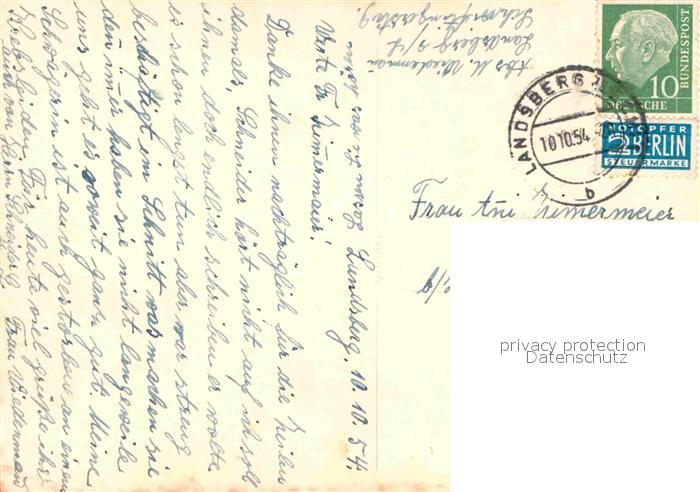 Landsberg, 10.10.54.
Werte Fr Zimermaier!
Danke ihnen nachträglich für die Zeilen
damals, Schneider hört nicht auf ich soll
ihnen doch endlich schreiben er wollte
es schon lengst tun aber war streng
beschäftigt im Schnitt was machen sie
den imer haben sie nicht langeweile
uns geht es soweit ganz gut. Meine
Schwägerin ist auch gestorben an einem
Krebsleiden. Für heute viel grüße ihr
auch von Herrn Schneider Frau Wiedemann
Abs. M. Wiedeman
Landsberg a/L
DEUTSCHE BUNDESPOST
10
NOTOPFER
2 BERLIN
STEUERMARKE
LANDSBERG
10.10.54
b
Frau Ani Zimermeier
b/
privacy protection
Datenschutz